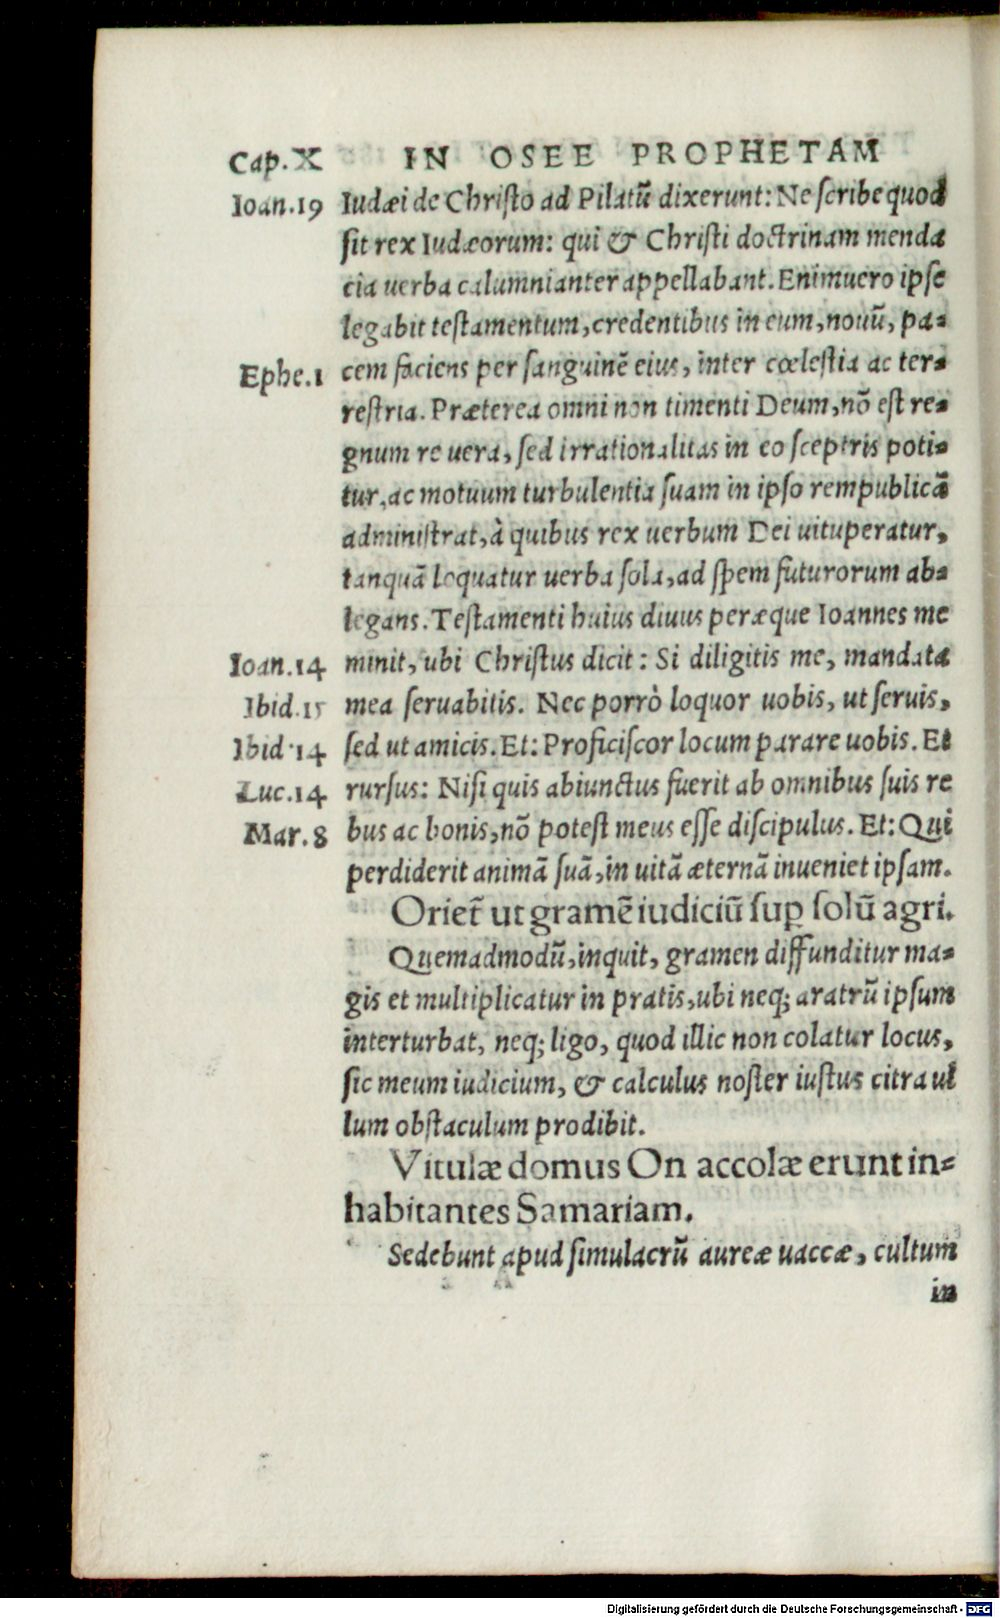 Cap. X IN OSEE PROPHETAM
Ioan.19 Iudæi de Christo ad Pilatũ dixerunt: Ne scribe quod
sit rex Iudæorum: qui & Christi doctrinam menda
cia uerba calumnianter appellabant. Enimuero ipse
legabit testamentum, credentibus in eum, nouũ, pa-
Ephe.1 cem faciens per sanguinẽ eius, inter cœlestia ac ter-
restria. Præterea omni non timenti Deum, nõ est re-
gnum re uera, sed irrationalitas in eo sceptris poti-
tur, ac motuum turbulentia suam in ipso rempublicã
administrat, à quibus rex uerbum Dei uituperatur,
tanquã loquatur uerba sola, ad spem futurorum ab-
legans. Testamenti huius diuus peræque Ioannes me
Ioan.14 minit, ubi Christus dicit: Si diligitis me, mandata
Ibid.15 mea seruabitis. Nec porrò loquor uobis, ut seruis,
Ibid.14 sed ut amicis. Et: Proficiscor locum parare uobis. Et
Luc.14 rursus: Nisi quis abiunctus fuerit ab omnibus suis re
Mar.8 bus ac bonis, nõ potest meus esse discipulus. Et: Qui
perdiderit animã suã, in uitã æternã inueniet ipsam.
Oriet̃ ut gramẽ iudiciũ sup solũ agri.
Quemadmodũ, inquit, gramen diffunditur ma-
gis et multiplicatur in pratis, ubi neq; aratrũ ipsum
interturbat, neq; ligo, quod illic non colatur locus,
sic meum iudicium, & calculus noster iustus citra ul
lum obstaculum prodibit.
Vitulæ domus On accolæ erunt in-
habitantes Samariam.
Sedebunt apud simulacrũ aureæ uaccæ, cultum
in
Digitalisierung gefördert durch die Deutsche Forschungsgemeinschaft - DFG